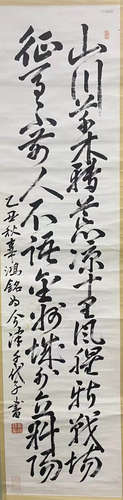 山川草木轉荒涼十里風腥新戰場
征馬不前人不語金州城外立斜陽
乙丑秋辜鴻銘為今津千代子書